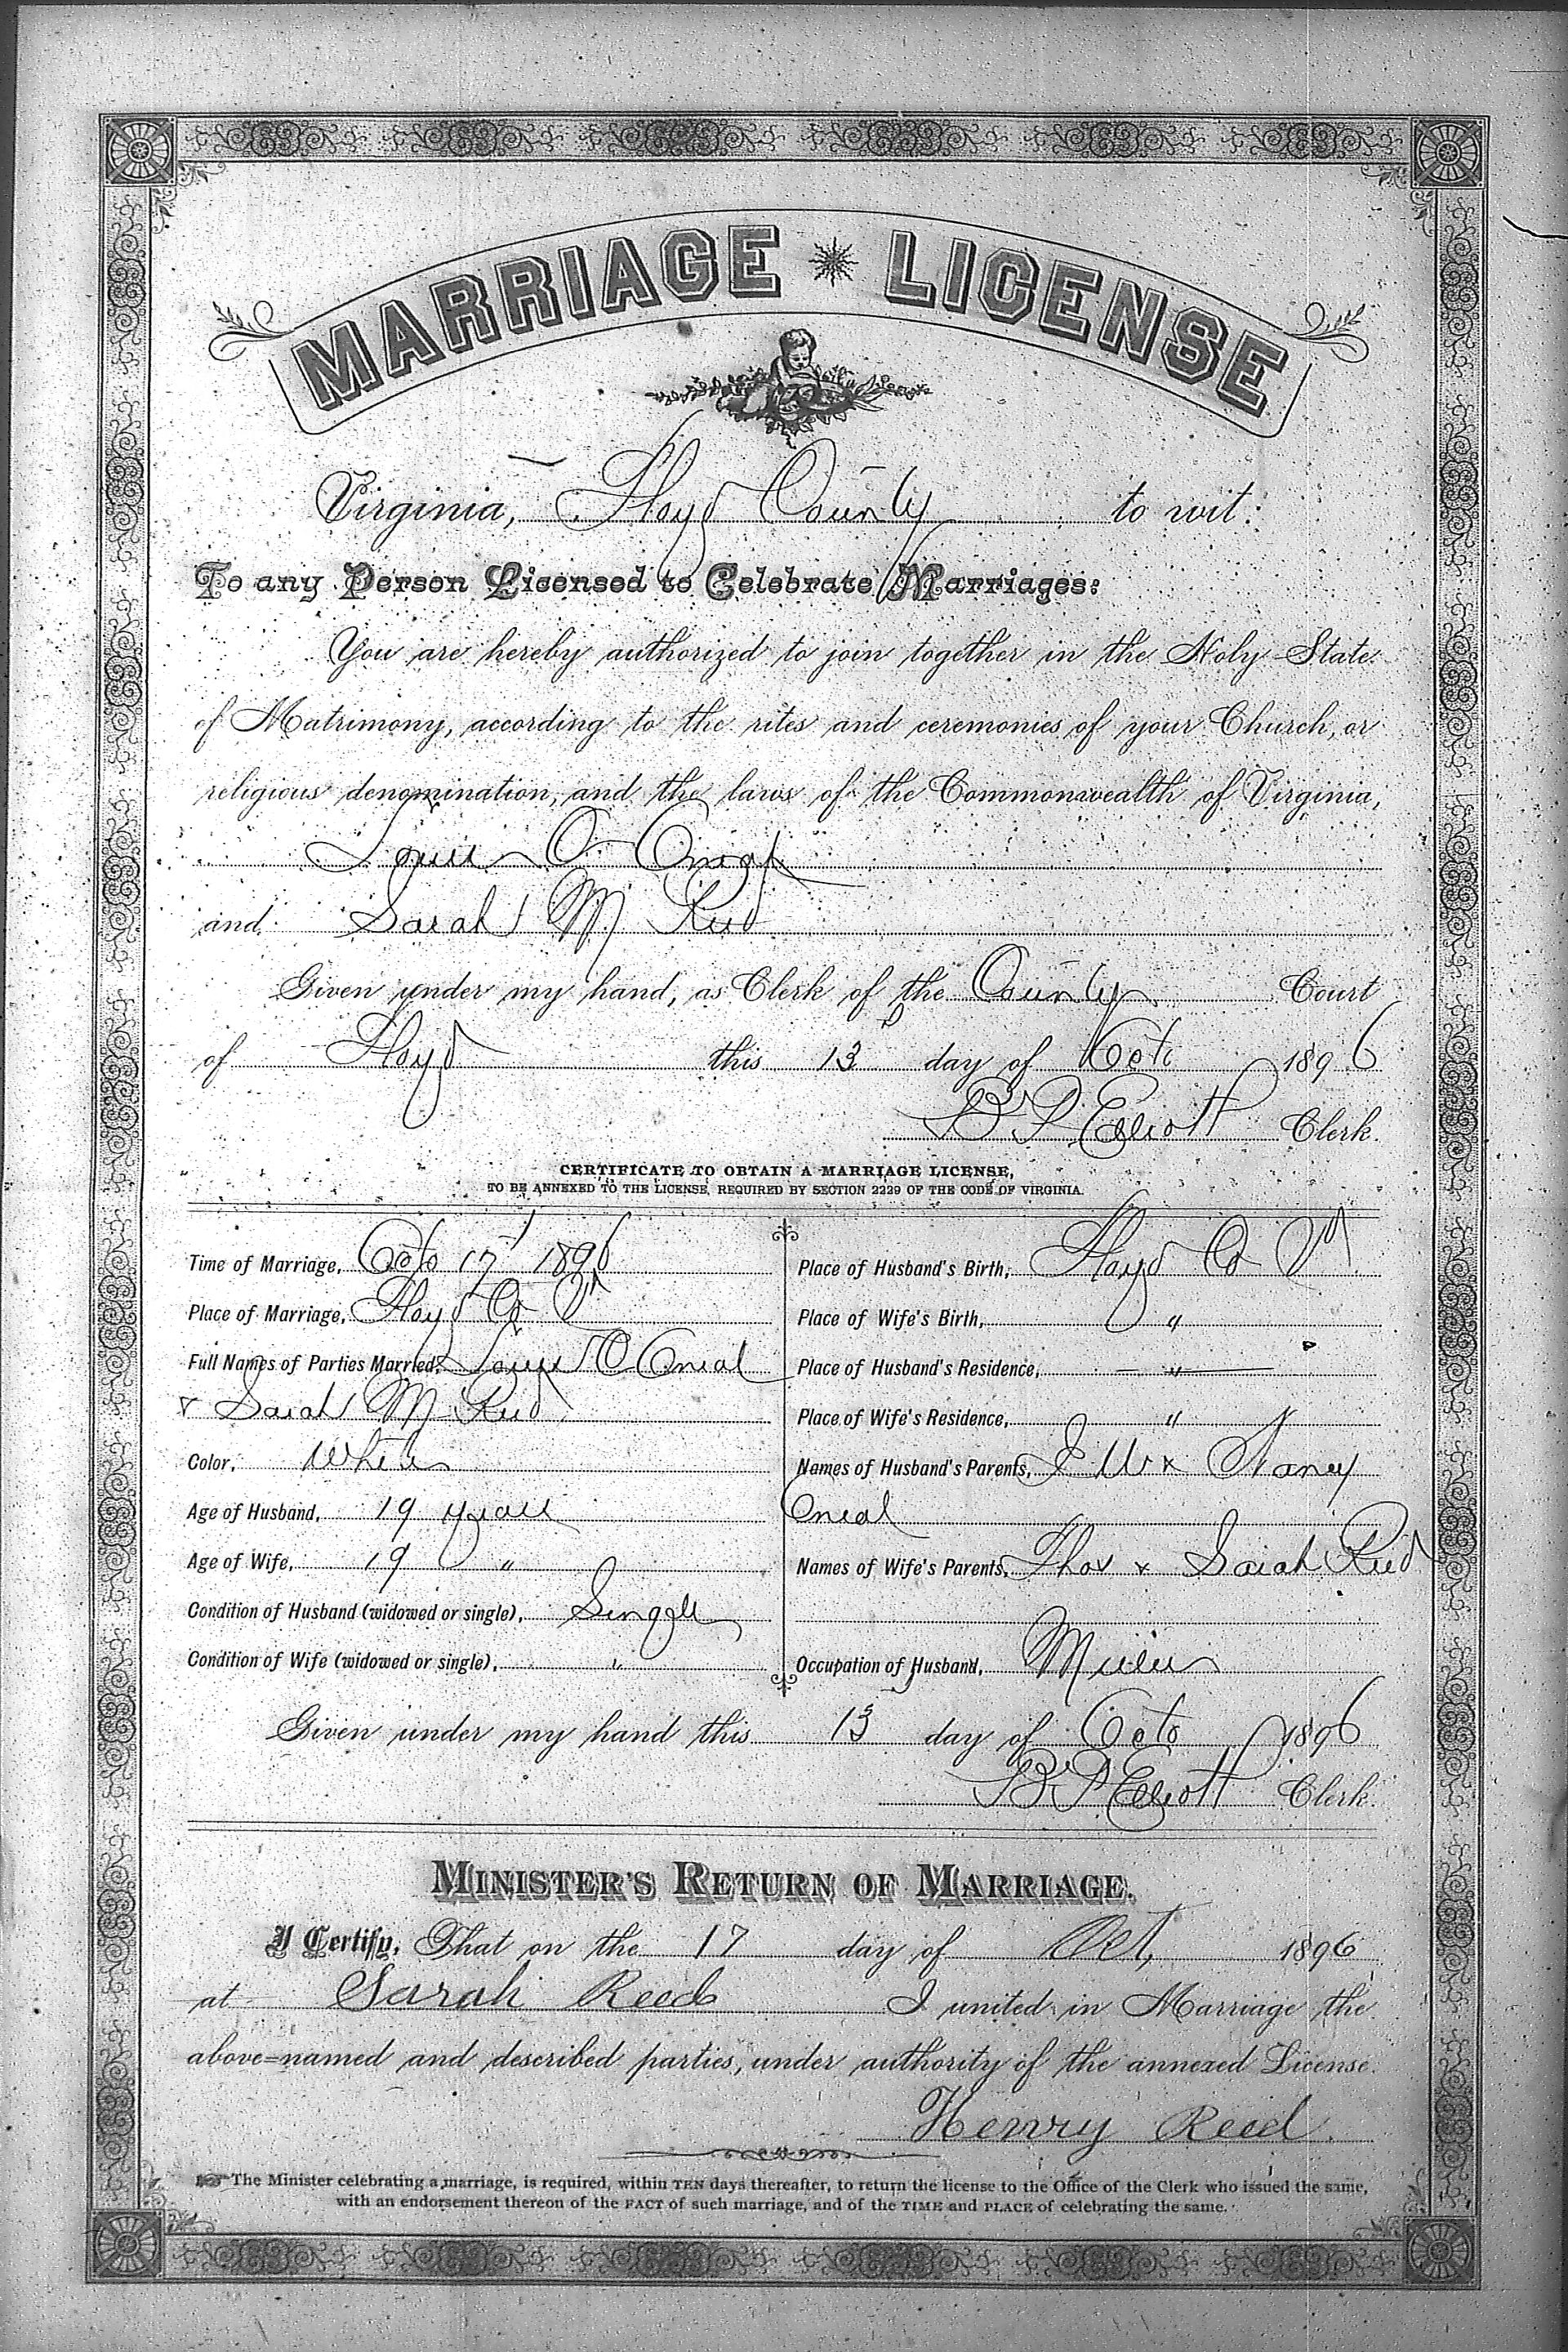 MARRIAGE LICENSE
Virginia, Floyd County to wit:
To any Person Licensed to Celebrate Marriages:
You are hereby authorized to join together in the Holy State
of Matrimony, according to the rites and ceremonies of your Church, or
religious denomination, and the laws of the Commonwealth of Virginia,
O
and Sarah M Reed
Given under my hand, as Clerk of the County Court
of Floyd this 13 day of Octo 1896
B P Elliott Clerk.
CERTIFICATE TO OBTAIN A MARRIAGE LICENSE,
TO BE ANNEXED TO THE LICENSE, REQUIRED BY SECTION 2229 OF THE CODE OF VIRGINIA.
Time of Marriage, Octo 17 1896
Place of Marriage, Floyd Co Va
Full Names of Parties Married, O Oneal
& Sarah M Reed
Color, White
Age of Husband, 19 years
Age of Wife, 19 "
Condition of Husband (widowed or single), Single
Condition of Wife (widowed or single), "
Place of Husband's Birth, Floyd Co Va
Place of Wife's Birth, "
Place of Husband's Residence, — " —
Place of Wife's Residence, "
Names of Husband's Parents, J W & Nancy
Oneal
Names of Wife's Parents, Thos & Sarah Reed
Occupation of Husband, Miller
Given under my hand this 13 day of Octo 1896
B P Elliott Clerk.
MINISTER'S RETURN OF MARRIAGE.
I Certify, That on the 17 day of Oct, 1896,
at Sarah Reeds I united in Marriage the
above-named and described parties, under authority of the annexed License.
Henry Reed.
The Minister celebrating a marriage, is required, within TEN days thereafter, to return the license to the Office of the Clerk who issued the same,
with an endorsement thereon of the FACT of such marriage, and of the TIME and PLACE of celebrating the same.